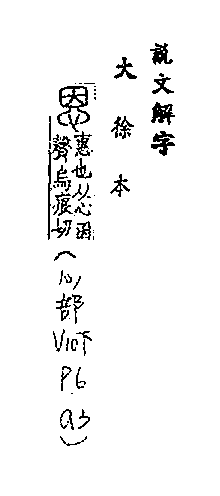 說文解字
大徐本
恩
惠也从心因
聲烏痕切
（心部
V10下
P6
a3）